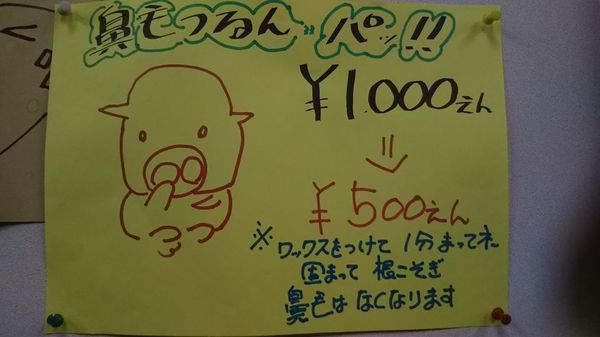 鼻毛つるんパッ!!
¥1.000えん
⇒
¥500えん
※ワックスをつけて 1分まってネ
固まって 根こそぎ
鼻毛は なくなります